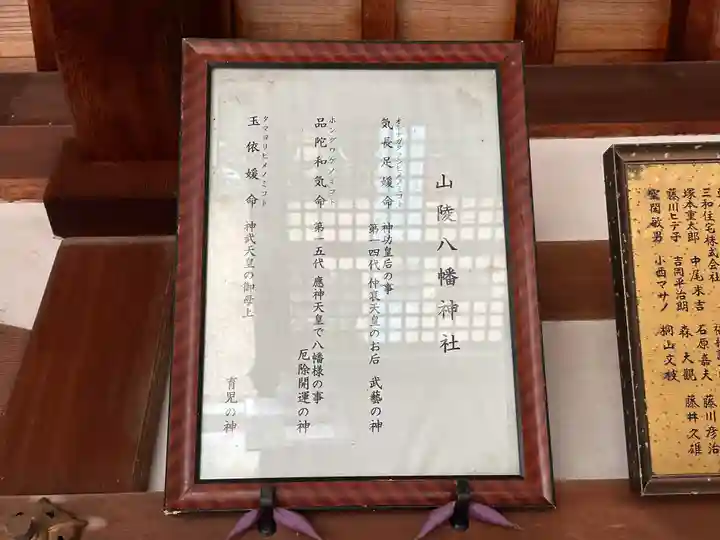 山陵八幡神社
オキナガタラシヒメノミコト
気長足媛命 神功皇后の事
第一四代 仲哀天皇のお后 武藝の神
ホンダワケノミコト
品陀和気命 第一五代 應神天皇で八幡様の事
厄除開運の神
タマヨリヒメノミコト
玉依媛命 神武天皇の御母上
育児の神
三和住宅株式会社 石原嘉夫 藤川彦治
塚本重太郎 中尾米吉 森大觀 藤井久雄
藤川ヒデ子 吉岡平治朗 桐山文枝
室関敏男 小西マサノ